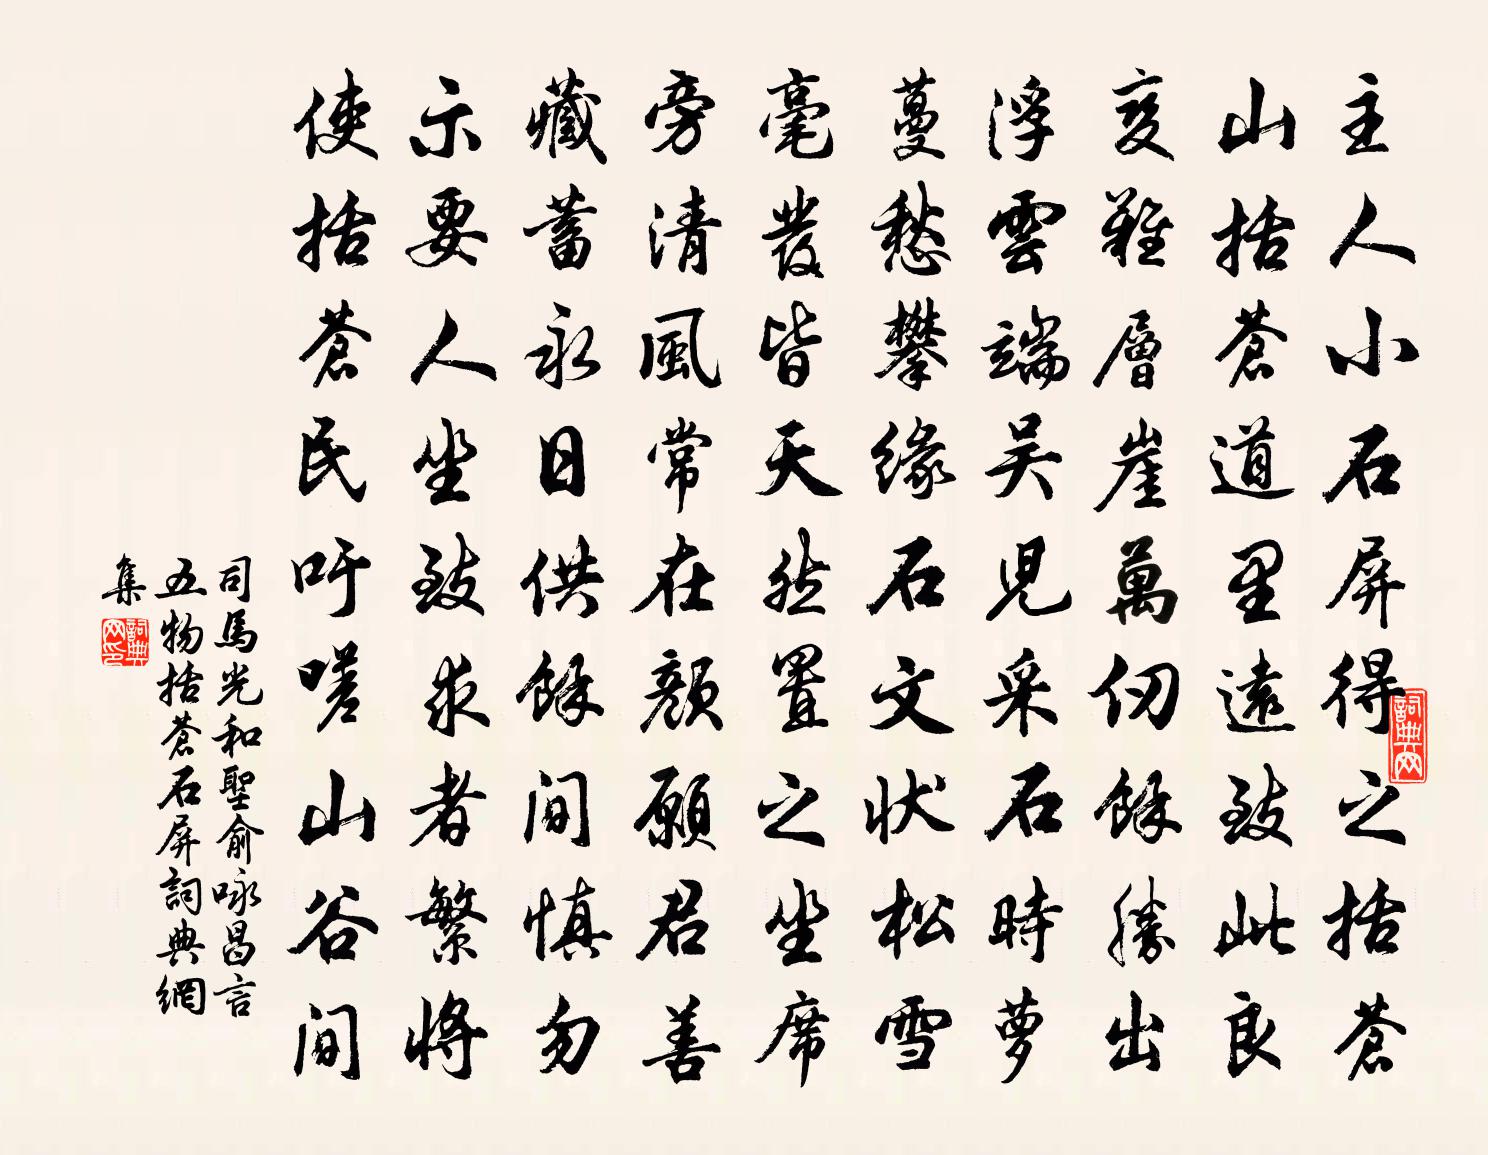 主人小石屏得之括蒼
山括蒼道里遠致此良
复難層崖萬仞餘勝出
浮雲端吴児采石時萝
蔓愁攀緣石文狀松雪
毫發皆天然置之坐席
旁清風常在顏願君善
藏蓄永日供餘間慎勿
示要人坐致求者繁將
使括蒼民吁嗟山谷間
司馬光和聖俞咏昌言
五物括蒼石屏詞典網
集
詞典网
詞典网印